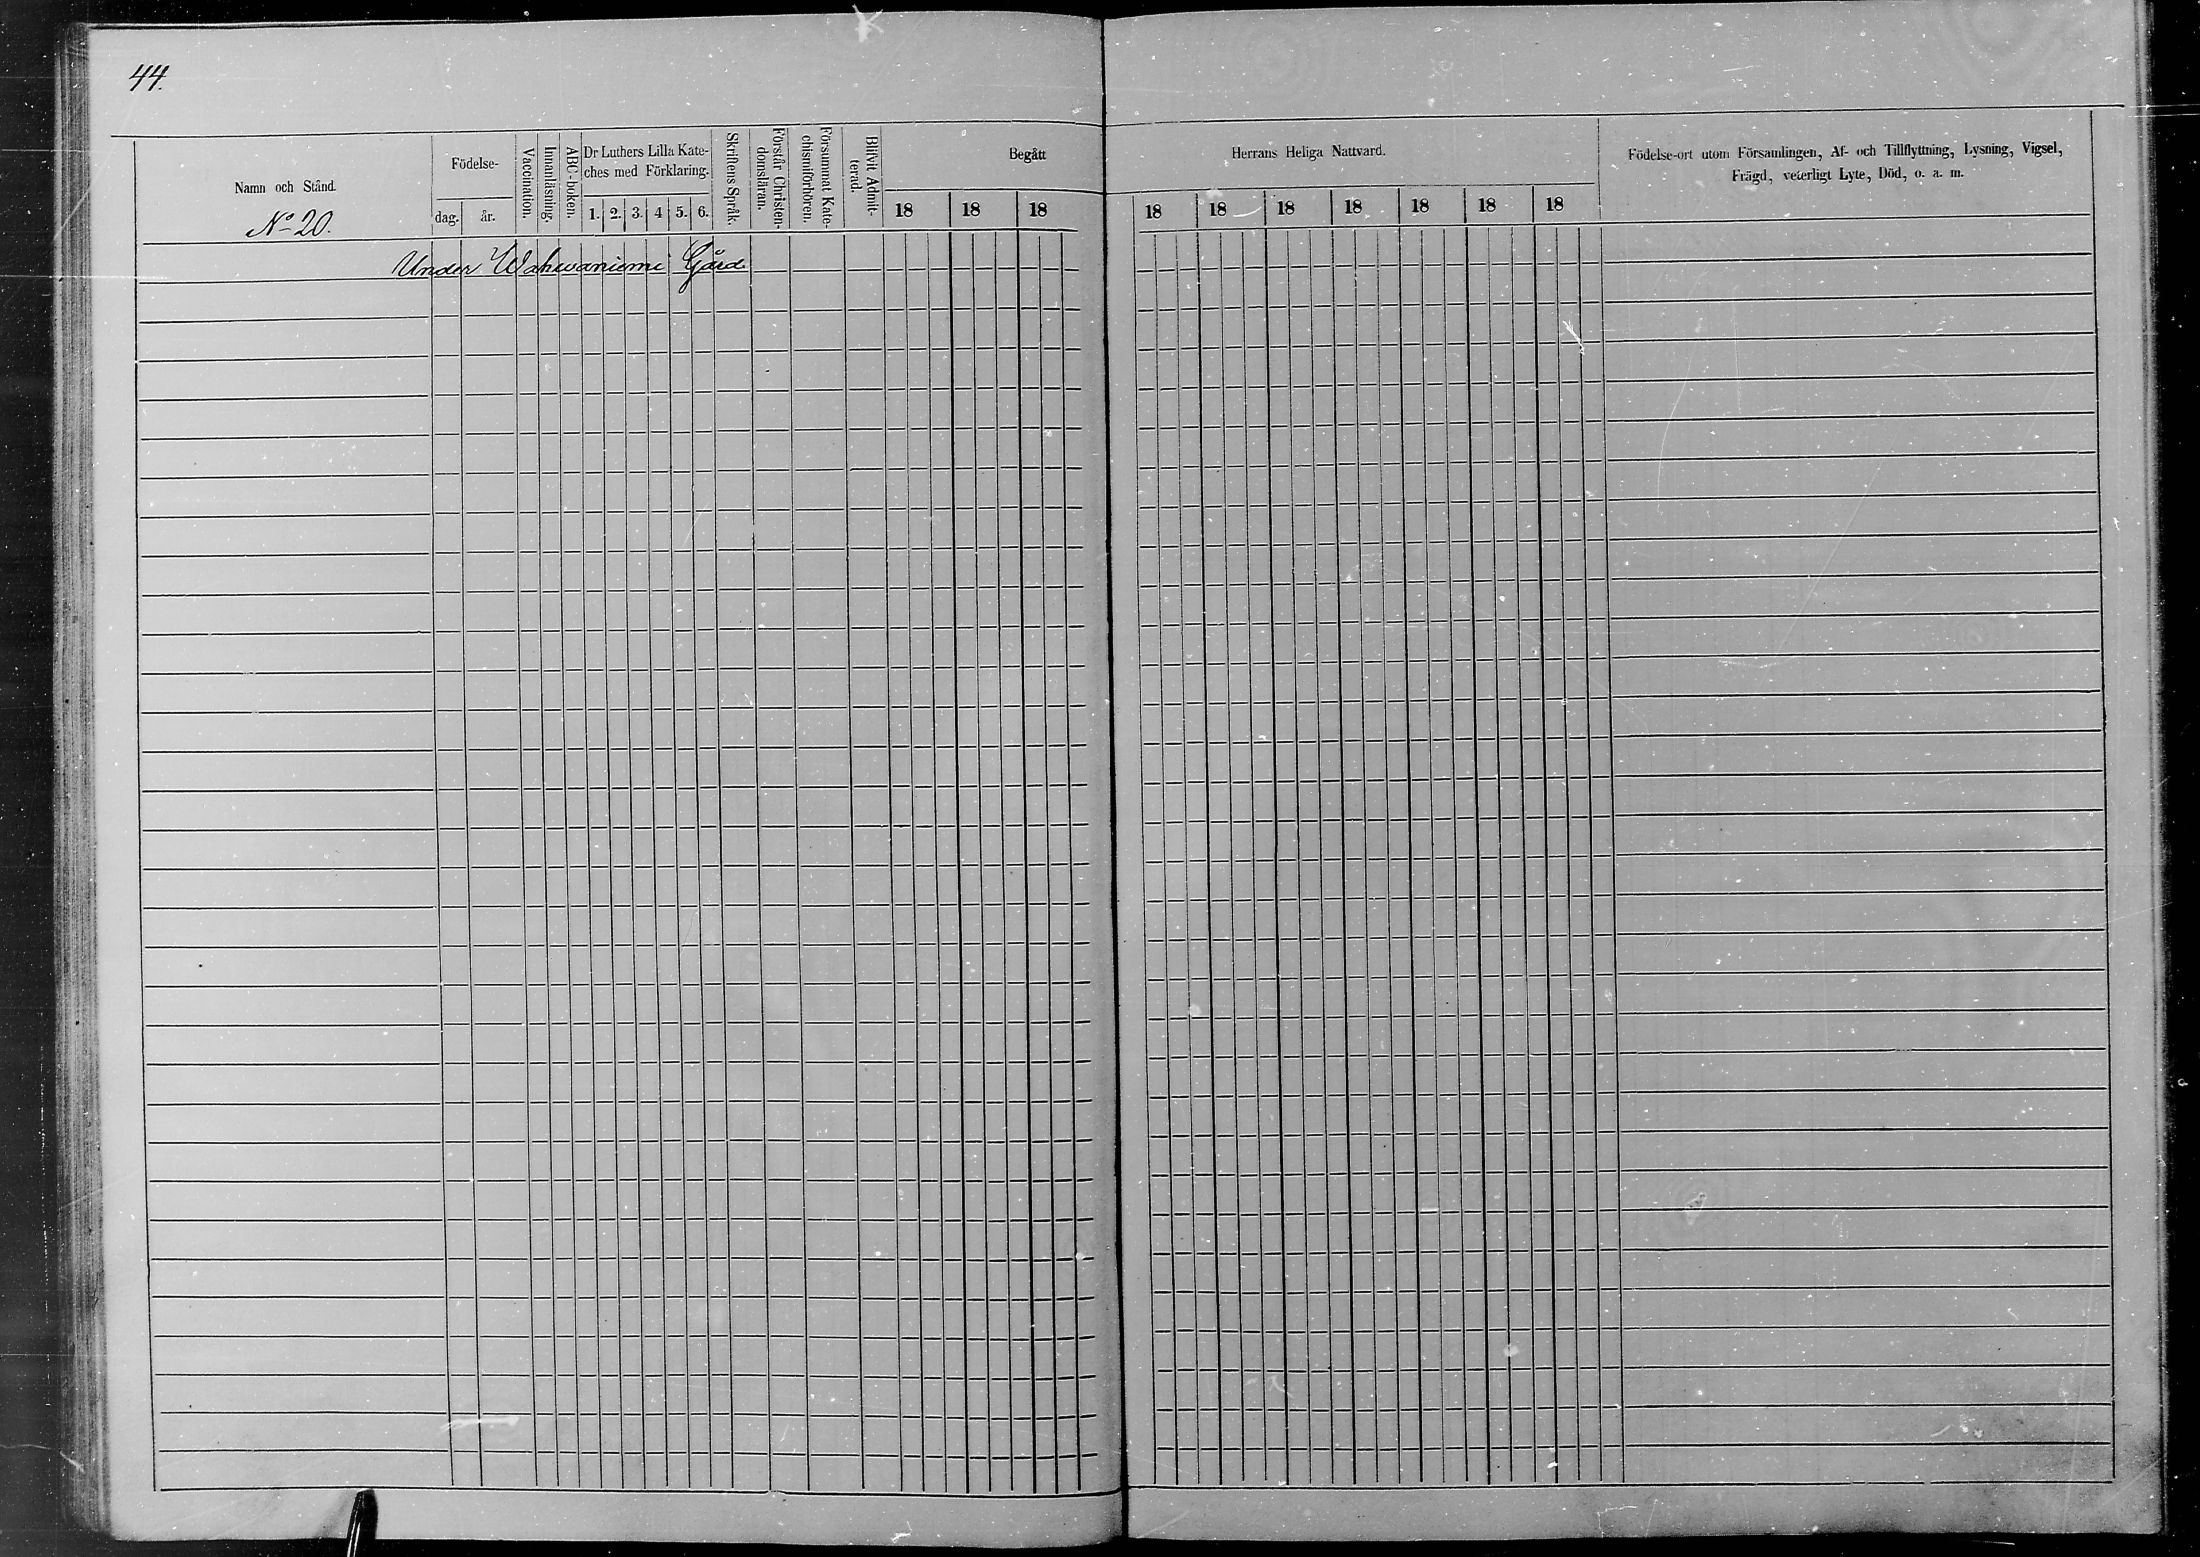 44.
Namn och Stånd.
No 20.
Födelse-
dag.
år.
Vaccination.
Innanläsning.
ABC-boken.
Dr Luthers Lilla Kate-
ches med Förklaring.
1. 2. 3. 4 5. 6.
Skriftens Språk.
Förstår Christen-
domsläran.
Försummat Kate-
chismiförhören.
Blifvit Admit-
terad.
Begått
18 18 18
Herrans Heliga Nattvard.
18 18 18 18 18 18 18
Födelse-ort utom Församlingen, Af- och Tillflyttning, Lysning, Vigsel,
Frägd, veterligt Lyte, Död, o. a. m.
Under Wahwaniemi Gård.